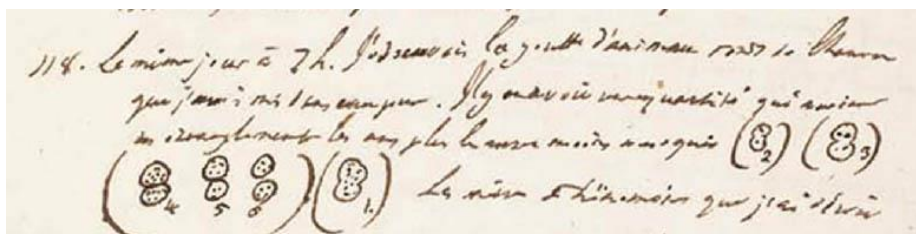 118. Le même jour à 7 h. J'observois la goutte d'animaux ronds de Chanvre
que j'avois mis dans eau pure. Il y en avoit une quantité qui avoient
un étranglement les uns plus les autres moins marqués ( 2) ( 3)
( 4 5 6 ) ( 1. ) Le même Phénomène que j'ai